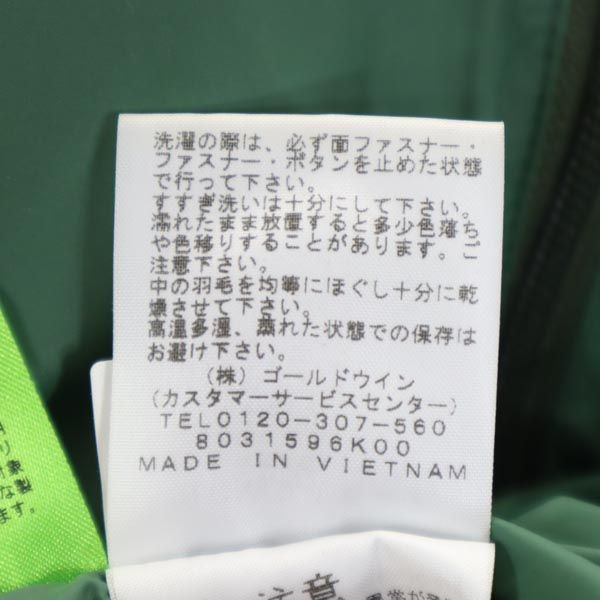 洗濯の際は、必ず面ファスナー・
ファスナー・ボタンを止めた状態
で行って下さい。
すすぎ洗いは十分にして下さい。
濡れたまま放置すると多少色落ち
や色移りすることがあります。ご
注意下さい。
中の羽毛を均等にほぐし十分に乾
燥させて下さい。
高温多湿、蒸れた状態での保存は
お避け下さい。
(株)ゴールドウイン
(カスタマーサービスセンター)
TEL0120-307-560
8031596K00
MADE IN VIETNAM
り
対象
な製
ます。
注意